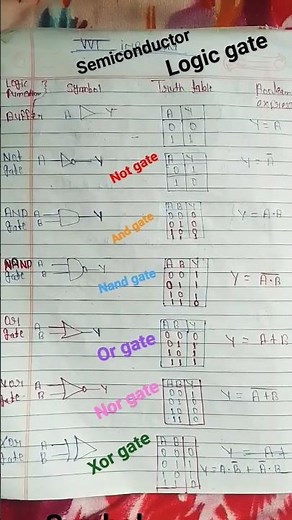 VVI
Semiconductor
Logic gate
Logic function Symbol Truth table Boolean
Buffer A Y A Y Y = A
0 0
1 1
Not gate A Y A Y Y = A̅
0 1
1 0
Not gate
AND gate A B Y A B Y Y = A·A
0 0 0
0 1 0
1 0 0
1 1 1
And gate
NAND gate A B Y A B Y
0 0 1
0 1 1
1 0 1
1 1 0
Nand gate
Or gate A B Y A B Y Y = A+B
0 0 0
0 1 1
1 0 1
1 1 1
Or gate
Xor gate A B Y A B Y Y = A̅+̅B̅
0 0 1
0 1 0
1 0 0
1 1 0
Nor gate
Xor gate A B A B Y Y = A
0 0 0
0 1 1
1 0 1
1 1 0
Xor gate